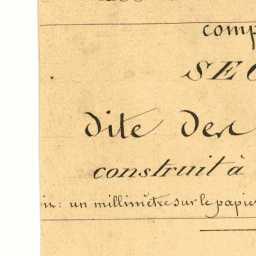 comp
SEC
dite des
construit à
in: un millimètre sur le papier